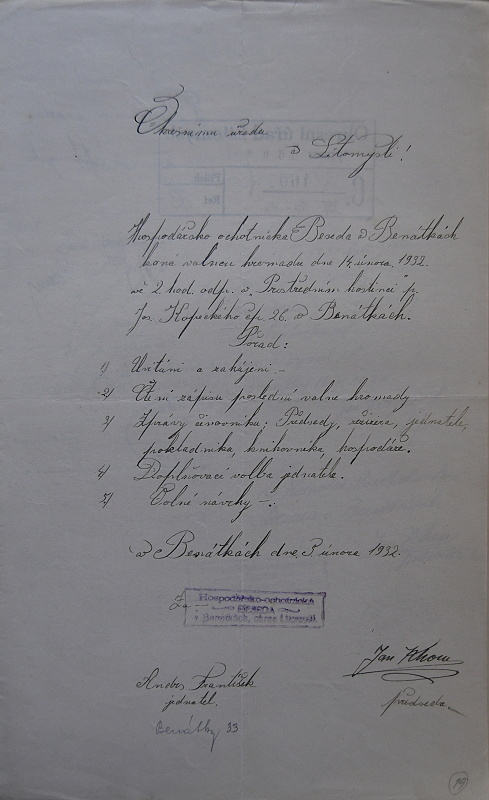 Okresnímu úřadu
v Litomyšli!
Hospodářsko ochotnická Beseda v Benátkách
koná valnou hromadu dne 14. února 1932.
ve 2 hod. odp. v „Prostředním hostinci" p.
Jos. Kopeckého čp. 26. v Benátkách.
Pořad:
1) Uvítání a zahájení. –
2) Čtení zápisu poslední valné hromady
3) Zprávy činovníků: Předsedy, režiséra, jednatele,
pokladníka, knihovníka, hospodáře.
4) Doplňovací volba jednatele.
5) Volné návrhy –.
v Benátkách dne 3. února 1932.
Za –
Hospodářsko-ochotnická
BESEDA
v Benátkách, okres Litomyšl
Jan
předseda
František
jednatel.
Benátky 33
19